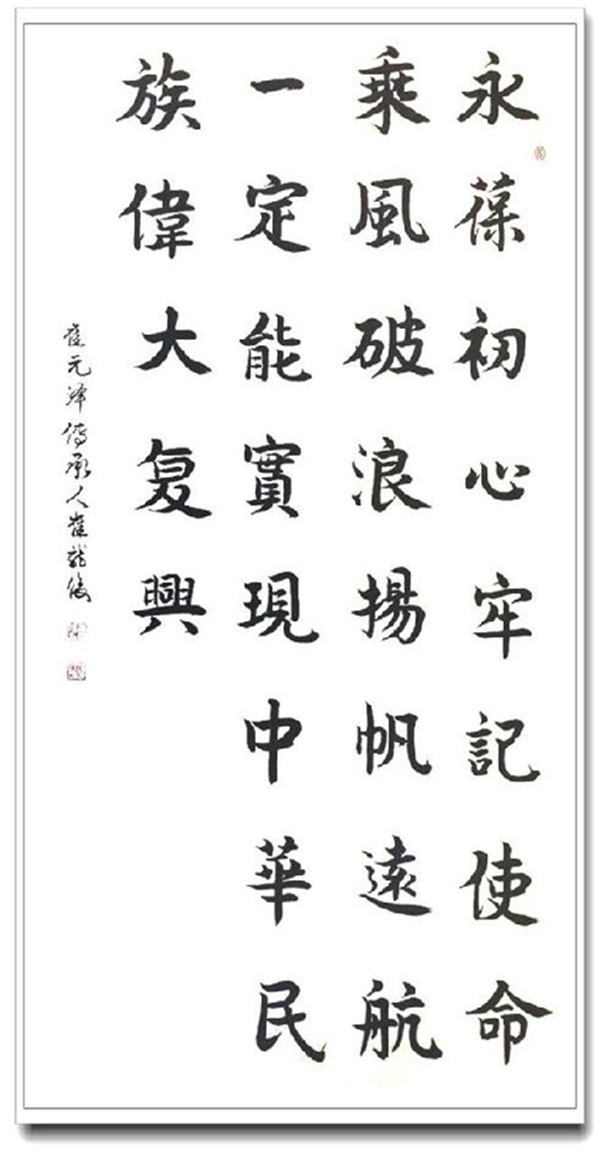 永葆初心牢記使命
乘風破浪揚帆遠航
一定能實現中華民
族偉大复興
崔元泽傳承人崔龍俊